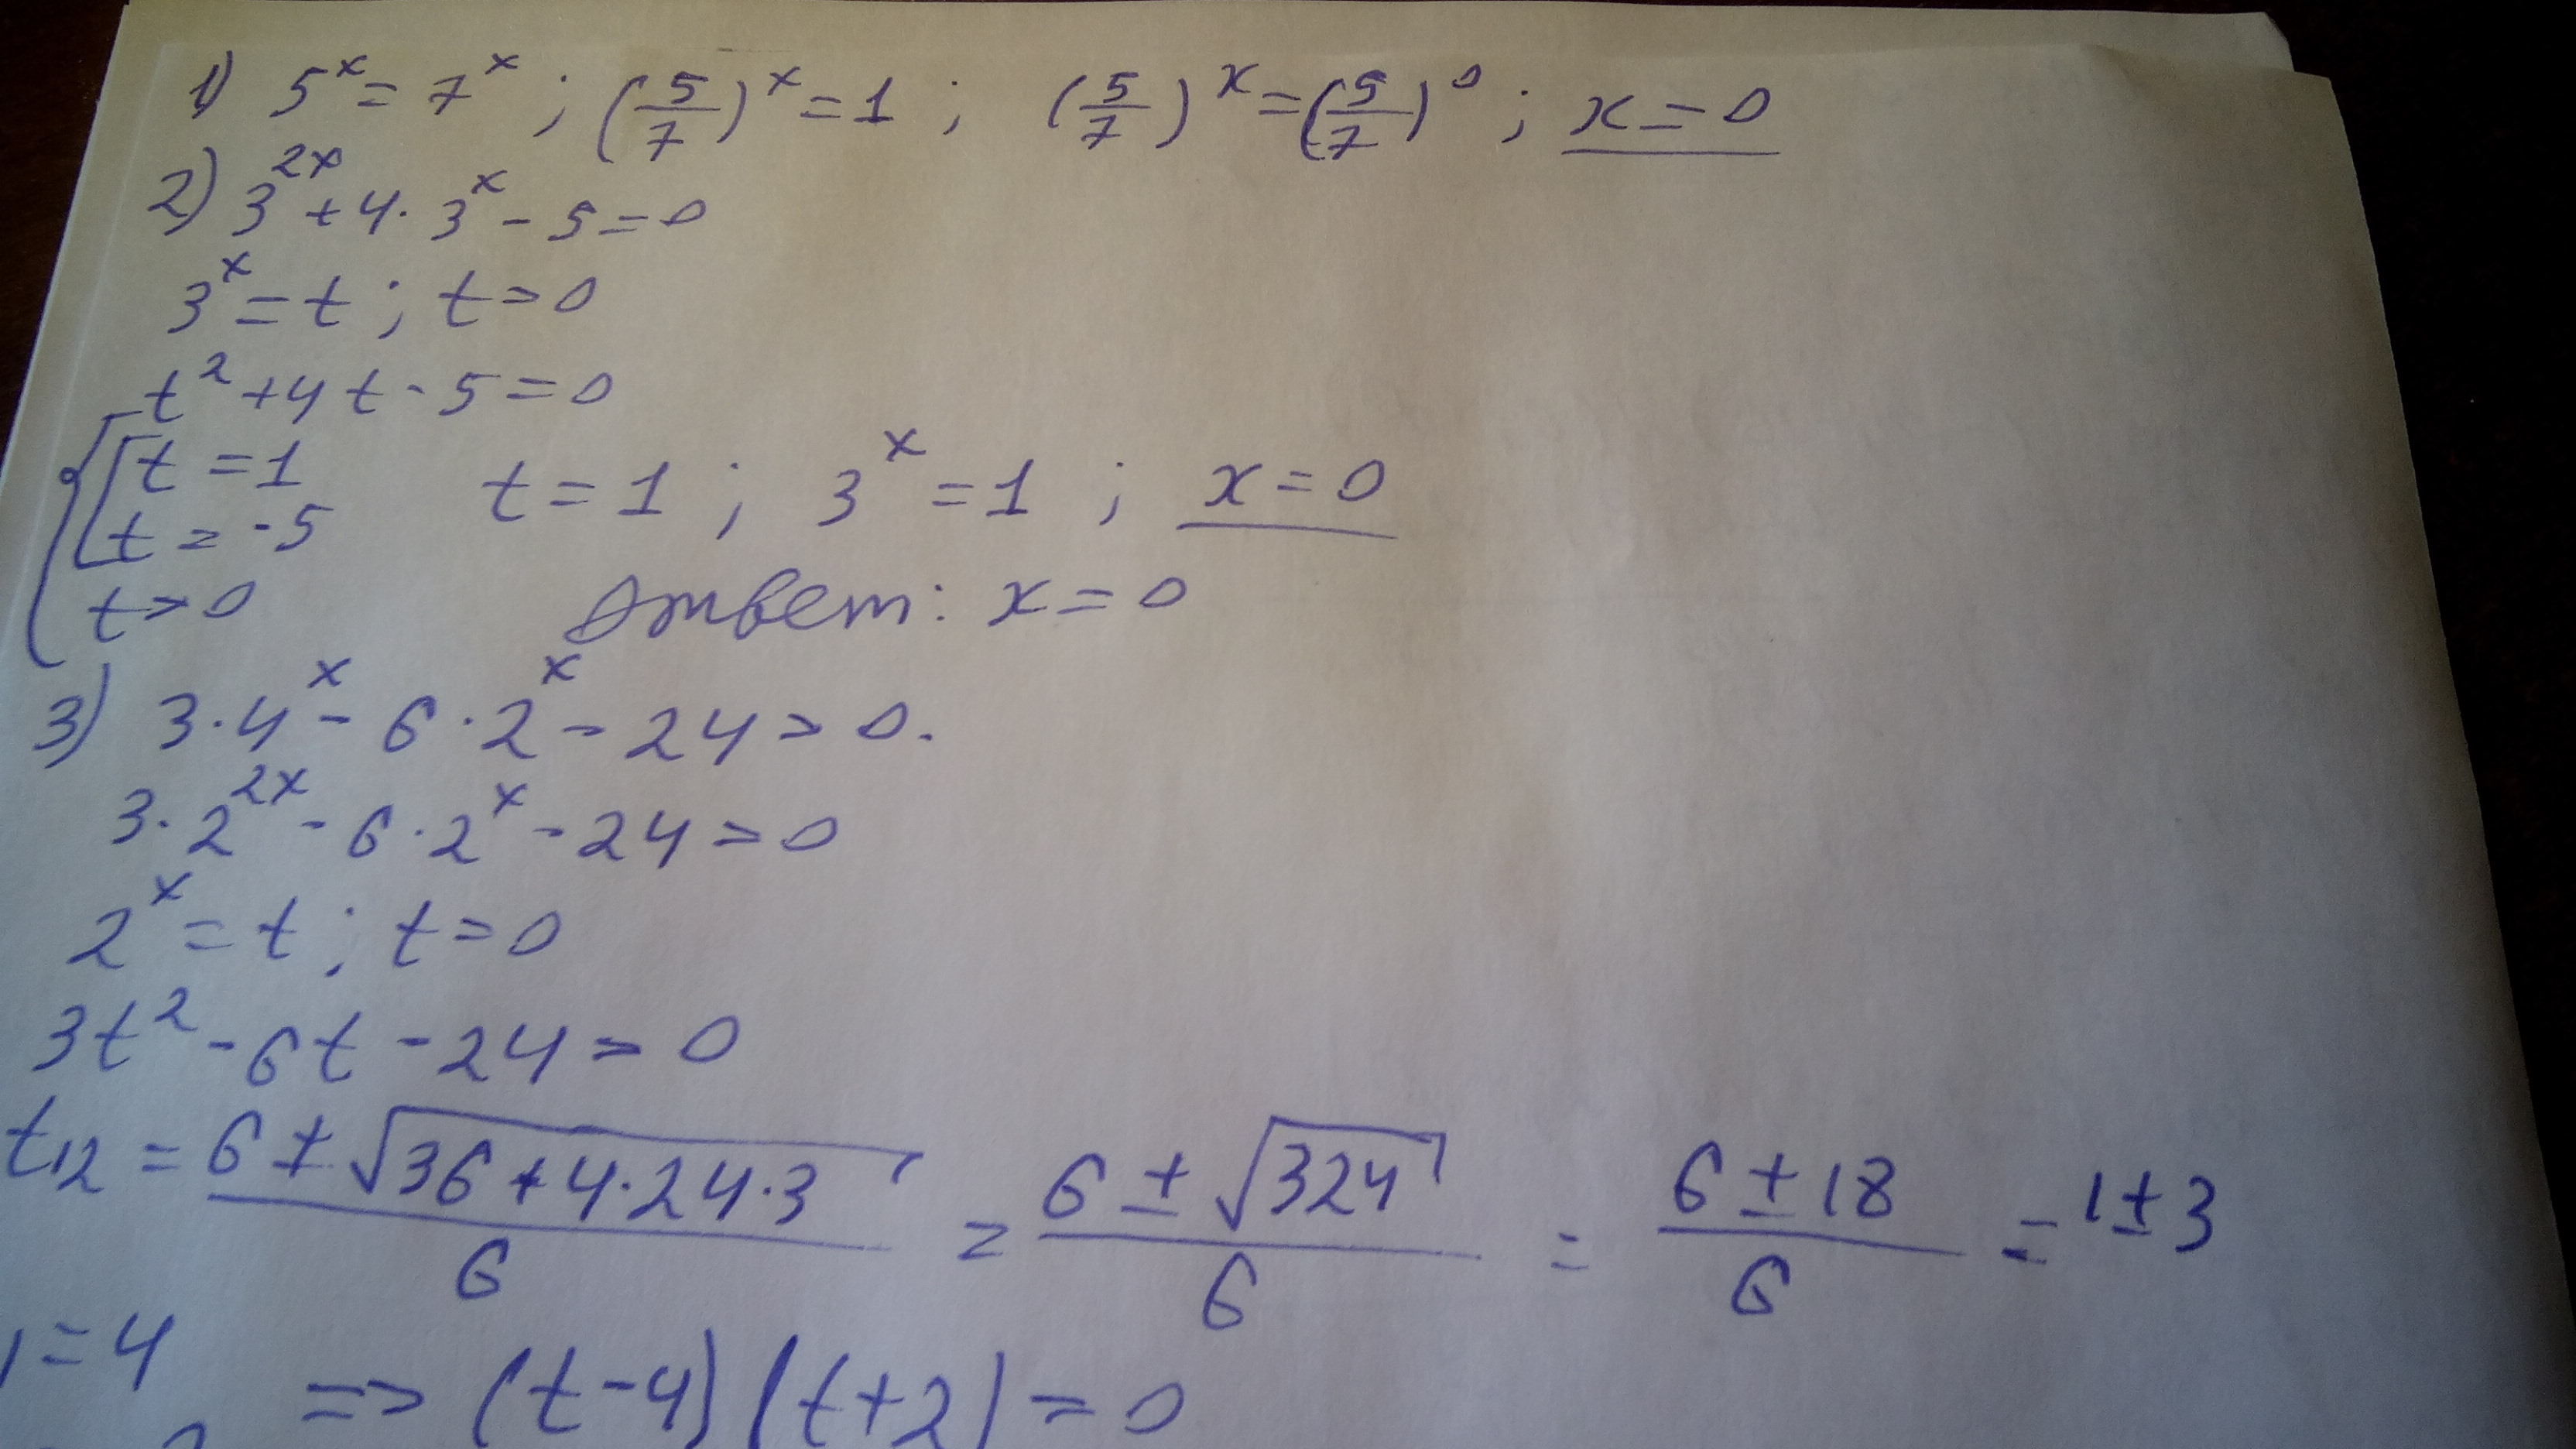 1) 5^x = 7^x ; (5/7)^x = 1 ; (5/7)^x = (5/7)^0 ; x = 0
2) 3^2x + 4 · 3^x - 5 = 0
3^x = t ; t > 0
t^2 + 4t - 5 = 0
t = 1 t = 1 ; 3^x = 1 ; x = 0
t = -5
t > 0 Ответ: x = 0
3) 3 · 4^x - 6 · 2^x - 24 > 0.
3 · 2^2x - 6 · 2^x - 24 > 0
2^x = t ; t > 0
3t^2 - 6t - 24 > 0
t12 = (6 ± √(36 + 4·24·3))/6 = (6 ± √324)/6 = (6 ± 18)/6 = 1 ± 3
1 = 4
=> (t - 4)(t + 2) > 0